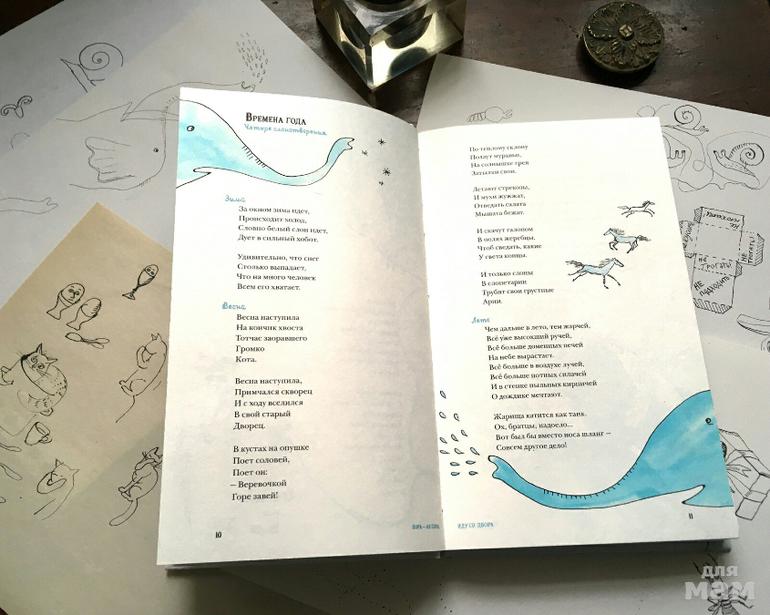 Времена года
Четыре слонотворения
Зима
За окном зима идет,
Происходит холод,
Словно белый слон идет,
Дует в сильный хобот.
Удивительно, что снег
Столько выпадает,
Что на много человек
Всем его хватает.
Весна
Весна наступила
На кончик хвоста
Тотчас заоравшего
Громко
Кота.
Весна наступила,
Примчался скворец
И с ходу вселился
В свой старый
Дворец.
В кустах на опушке
Поет соловей,
Поет он:
– Веревочкой
Горе завей!
10
ИДУ СО ДВОРА
По теплому склону
Ползут муравьи,
На солнышке грея
Затылки свои.
Летают стрекозы,
И мухи жужжат,
Отведать салата
Мышата бежат.
И скачут галопом
В полях жеребцы,
Чтоб сведать, какие
У света концы.
И только слоны
В слонетарии
Трубят свои грустные
Арии.
Лето
Чем дальше в лето, тем жарчей,
Всё уже высохший ручей,
Всё больше доменных печей
На небе вырастает.
Всё больше в воздухе лучей,
Всё больше потных силачей
И в стенке пыльных кирпичей
О дождике мечтают.
Жарища катится как танк.
Ох, братцы, надоело...
Вот был бы вместо носа шланг –
Совсем другое дело!
11
НЕ ТРОГАТЬ!
НЕ ПОДХОДИТЬ!
для
мам